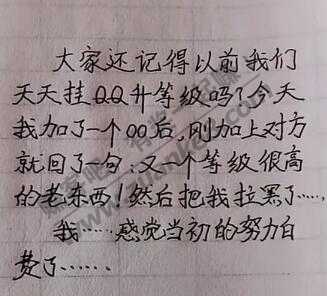 大家还记得以前我们
天天挂QQ升等级吗？今天
我加了一个00后，刚加上对方
就回了一句：又一个等级很高
的老东西！然后把我拉黑了……
我……感觉当初的努力白
费了……